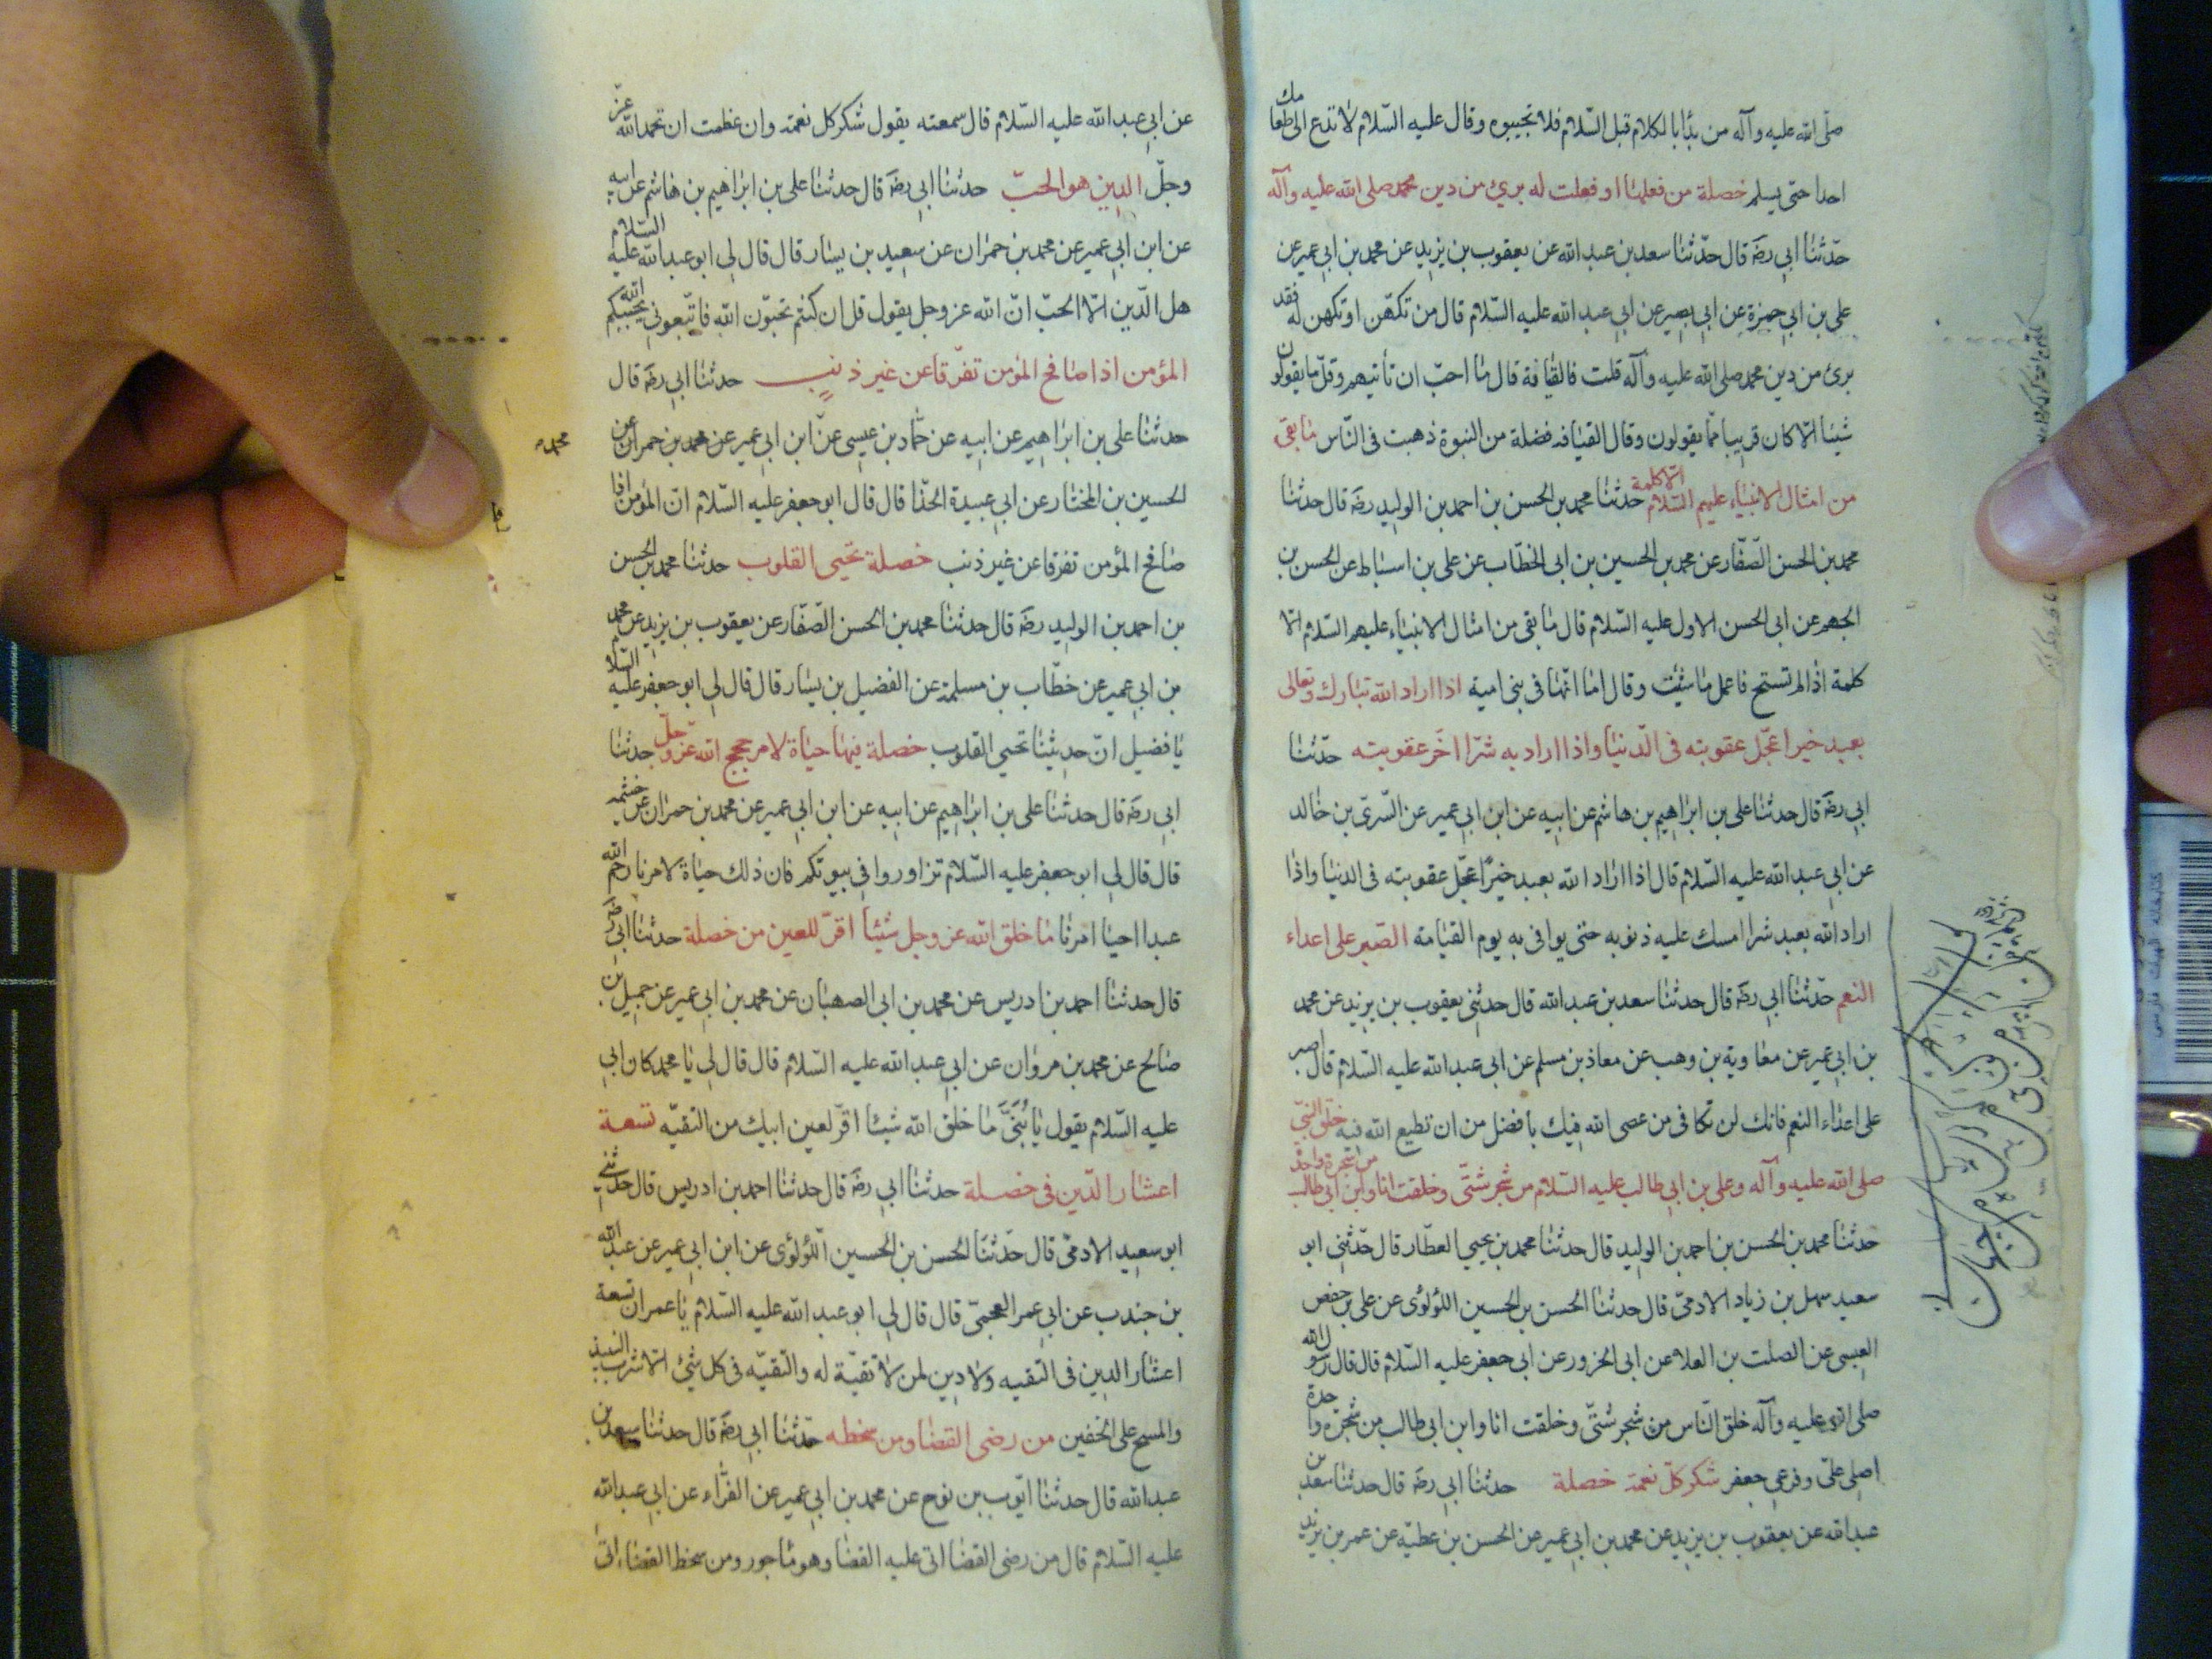 صلى الله عليه وآله من بدأ بالكلام قبل السّلام فلا تجيبوه وقال عليه السّلام لا تدع الى طعامك
احدا حتى يسلم خصلة من فعلها او فعلت له برئ من دين محمد صلى الله عليه وآله
حدّثنا ابي رضه قال حدّثنا سعد بن عبد الله عن يعقوب بن يزيد عن محمد بن ابي عمير عن
علي بن ابي حمزة عن ابي بصير عن ابي عبد الله عليه السّلام قال من تكهّن او تكهن له فقد
برئ من دين محمد صلى الله عليه وآله قلت فالقافة قال ما احبّ ان تأتيهم وقلّ ما يقولون
شيئا الّا كان قريبا ممّا يقولون وقال القيافه فضلة من النبوة ذهبت في النّاس ما بقى
من امثال الانبياء عليهم السّلام الّا كلمة حدثنا محمد بن الحسن بن احمد بن الوليد رضه قال حدثنا
محمد بن الحسن الصّفّار عن محمد بن الحسين بن ابى الخطّاب عن على بن اسباط عن الحسن بن
الجهم عن ابى الحسن الاول عليه السّلام قال ما بقى من امثال الانبياء عليهم السّلام الّا
كلمة اذا لم تستح فاعمل ما شئت وقال اما انّها في بني امية اذا اراد الله تبارك وتعالى
بعبد خيرا عجّل عقوبته في الدّنيا واذا اراد به شرّا اخّر عقوبته حدّثنا
ابي رضه قال حدثنا على بن ابراهيم بن هاشم عن ابيه عن ابن ابي عمير عن السّريّ بن خالد
عن ابي عبد الله عليه السّلام قال اذا اراد الله بعبد خيرًا عجّل عقوبته في الدنيا واذا
اراد الله بعبد شرا امسك عليه ذنوبه حتى يوافى به يوم القيامة الصّبر على اعداء
النعم حدّثنا ابي رضه قال حدثنا سعد بن عبد الله قال حدثني يعقوب بن يزيد عن محمد
بن ابي عمير عن معاوية بن وهب عن معاذ بن مسلم عن ابى عبد الله عليه السّلام قال اصبر
على اعداء النعم فانك لن تكافى من عصى الله فيك بافضل من ان تطيع الله فيه خلق النبيّ
صلى الله عليه وآله وعلي بن ابي طالب عليه السّلام من شجرة واحدة
حدثنا محمد بن الحسن بن احمد بن الوليد قال حدثنا محمد بن يحيى العطّار قال حدّثنى ابو
سعيد سهل بن زياد الادمىّ قال حدثنا الحسن بن الحسين اللؤلؤى عن على بن حفص
العبسى عن الصلت بن العلاء عن ابى الحزور عن ابى جعفر عليه السّلام قال قال رسول الله
صلى الله عليه وآله خلق النّاس من شجر شتّى وخلقت انا وابن ابى طالب من شجرة واحدة
اصلى علىّ وفرعى جعفر شكر كلّ نعمة خصلة حدثنا ابي رضه قال حدثنا سعد بن
عبد الله عن يعقوب بن يزيد عن محمد بن ابي عمير عن الحسن بن عطيّه عن عمر بن يزيد
عن ابي عبد الله عليه السّلام قال سمعته يقول شكر كل نعمة وان عظمت ان تحمد الله عزّ
وجلّ الدين هو الحبّ حدثنا ابي رضه قال حدثنا على بن ابراهيم بن هاشم عن ابيه
عن ابن ابي عمير عن محمد بن حمران عن سعيد بن يسار قال قال لي ابو عبد الله عليه السّلام
هل الدّين الّا الحبّ انّ الله عز وجل يقول قل ان كنتم تحبّون الله فاتّبعوني يحببكم الله
المؤمن اذا صافح المؤمن تفرّقا عن غير ذنب حدثنا ابي رضه قال
حدثنا على بن ابراهيم عن ابيه عن حمّاد بن عيسى عن ابن ابي عمير عن محمد بن حمران عن
الحسين بن المختار عن ابي عبيدة الحذّا قال قال ابو جعفر عليه السّلام انّ المؤمن اذا
صافح المؤمن تفرقا عن غير ذنب خصلة تحيى القلوب حدثنا محمد بن الحسن
بن احمد بن الوليد رضه قال حدثنا محمد بن الحسن الصّفّار عن يعقوب بن يزيد عن محمد
بن ابي عمير عن خطّاب بن مسلمة عن الفضيل بن يسار قال قال لي ابو جعفر عليه السّلام
يا فضيل انّ حديثنا تحيى القلوب خصلة فيها حياة لامر حجج الله عزّ وجلّ حدثنا
ابي رضه قال حدثنا على بن ابراهيم عن ابيه عن ابن ابي عمير عن محمد بن حمران عن خيثمه
قال قال لي ابو جعفر عليه السّلام تزاوروا في بيوتكم فان ذلك حياة لامرنا رحم الله
عبدا احيا امرنا ما خلق الله عز وجل شيئا اقرّ للعين من خصلة حدثنا ابي رضه
قال حدثنا احمد بن ادريس عن محمد بن ابى الصهبان عن محمد بن ابي عمير عن جميل بن
صالح عن محمد بن مروان عن ابي عبد الله عليه السّلام قال قال لي يا محمد كان ابي
عليه السّلام يقول يا بُنَيَّ ما خلق الله شيئا اقرّ لعين ابيك من التقيّه تسعة
اعشار الدّين في خصلة حدثنا ابي رضه قال حدثنا احمد بن ادريس قال حدثني
ابو سعيد الادمىّ قال حدّثنا الحسن بن الحسين اللؤلؤى عن ابن ابي عمير عن عبد الله
بن جندب عن ابي عمر العجميّ قال قال لي ابو عبد الله عليه السّلام يا عمران تسعة
اعشار الدين في التقيه ولا دين لمن لا تقيّة له والتقيّه في كل شئ الّا شرب النبيذ
والمسح على الخفين من رضى القضا ومن سخطه حدّثنا ابي رضه قال حدثنا سعد بن
عبد الله قال حدثنا ايّوب بن نوح عن محمد بن ابي عمير عن الفرّاء عن ابي عبد الله
عليه السّلام قال من رضى القضا اتى عليه القضا وهو مأجور ومن سخط القضاء اتى